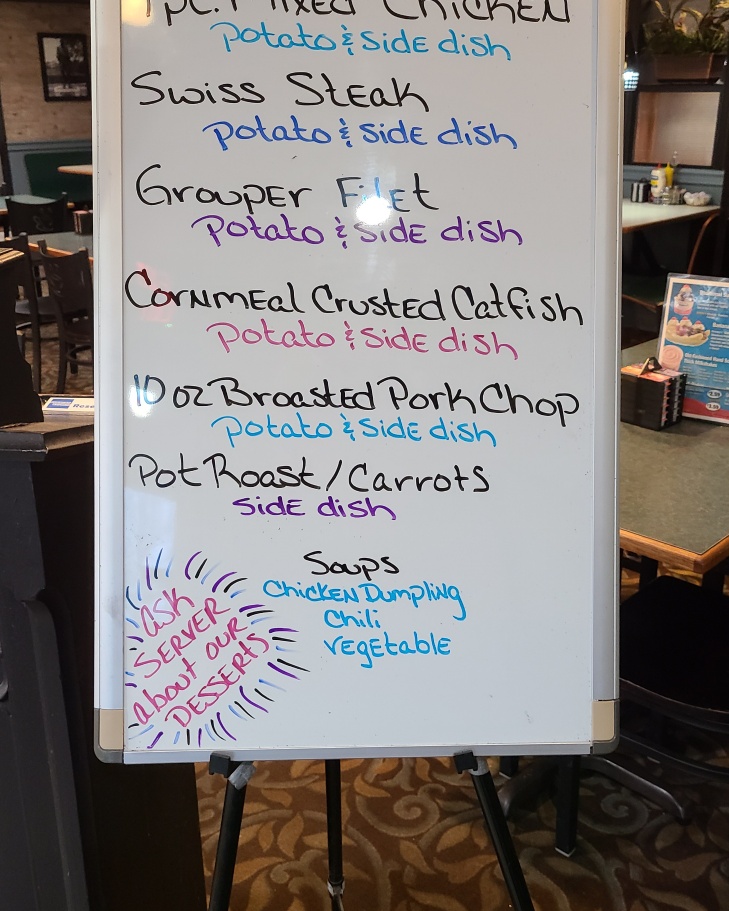 1 pc. Mixed Chicken
Potato & Side dish
Swiss Steak
Potato & Side dish
Grouper Filet
Potato & Side dish
Cornmeal Crusted Catfish
Potato & Side dish
10 oz Broasted Pork Chop
Potato & Side dish
Pot Roast/Carrots
Side dish
Soups
Chicken Dumpling
Chili
Vegetable
ask
SERVER
about OUR
DESSERTS